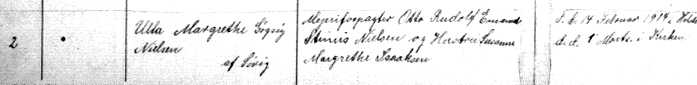 2
Ulla Margrethe Søgvig
Nielsen
af Sövig
Mejeriforpagter Otto Rudolf Emanuel
Stinus Nielsen og Hustru Susanne
Margrethe Isaaksen
F. d. 14 Februar 1919,
d. d. 1' Marts. i Kirken